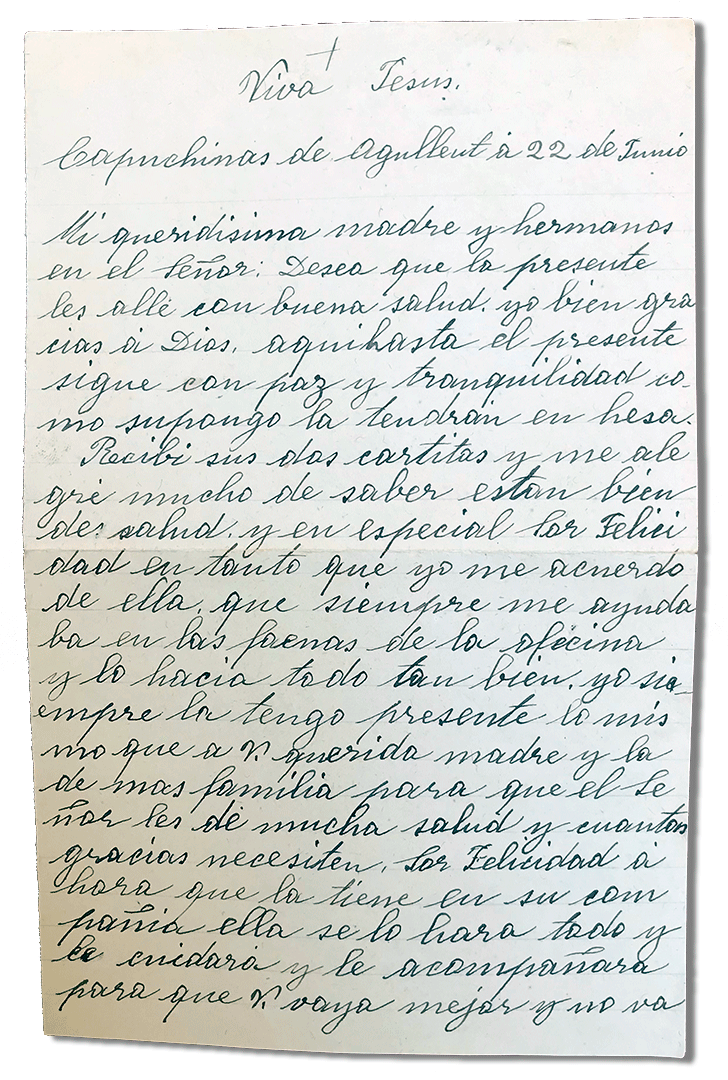 +
Viva Jesus.
Capuchinas de Agullent á 22 de Junio
Mi queridisima madre y hermanas
en el Señor: Deseo que la presente
les alle con buena salud. yo bien gra
cias á Dios, aqui hasta el presente
sigue con paz y tranquilidad co-
mo supongo la tendrán en hesa.
Recibi sus dos cartitas y me ale
gré mucho de saber estan bien
de salud. y en especial Sor Felici
dad en tanto que yo me acuerdo
de ella, que siempre me ayuda
ba en las faenas de la oficina
y lo hacia todo tan bien, yo si-
empre la tengo presente lo mis
mo que a V. querida madre y la
de mas familia para que el Se
ñor les dé mucha salud y cuantas
gracias necesiten, Sor Felicidad á
hora que la tiene en su com
pañia ella se lo hara todo y
le cuidará y le acompañara
para que V. vaya mejor y no va